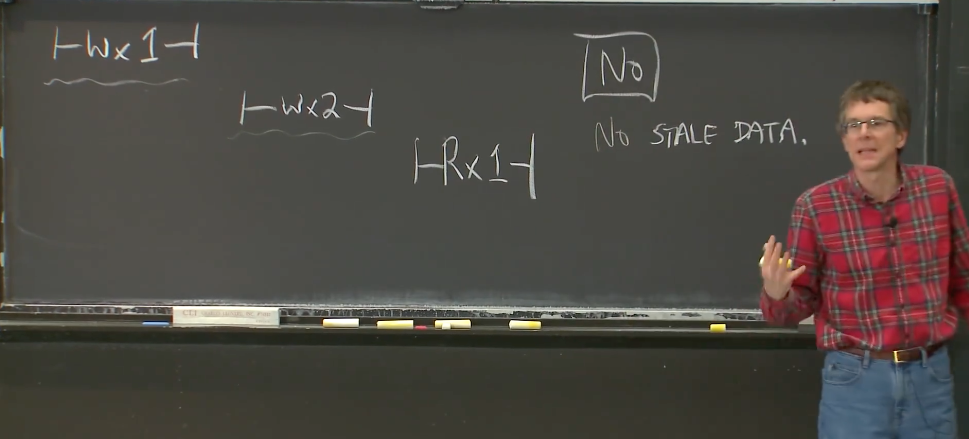 |-Wx1-|
|-Wx2-|
|-Rx1-|
No
No STALE DATA.